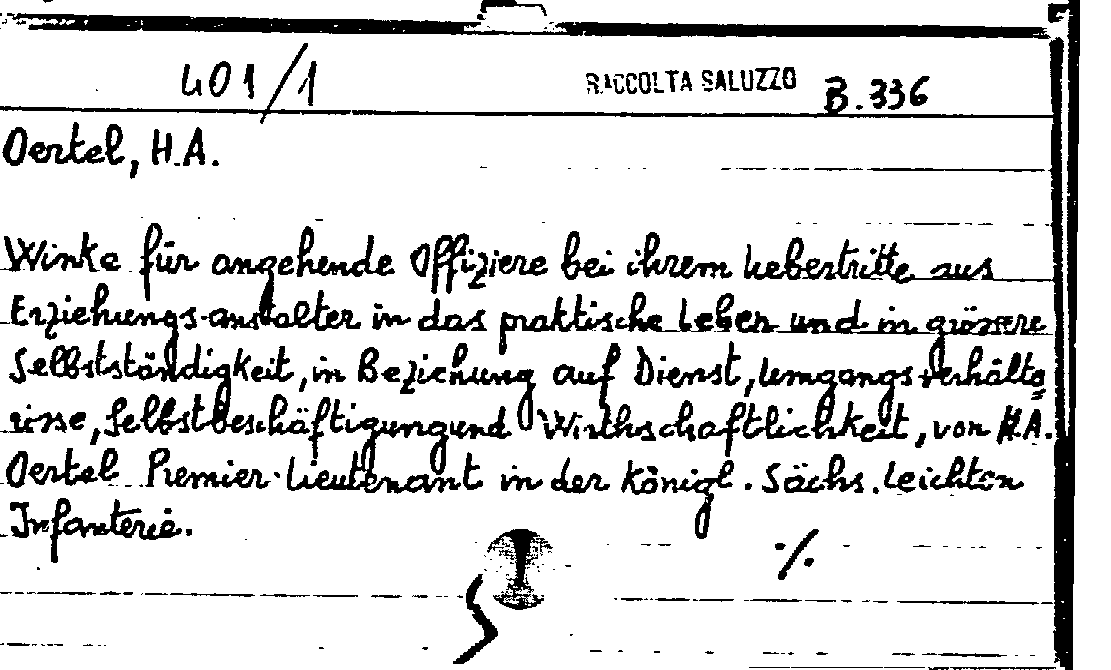 401/1 RACCOLTA SALUZZO B.336
Oertel, H.A.
Winke für angehende Offiziere bei ihrem Uebertritte aus
Erziehungs-anstalten in das praktische Leben und in grössere
Selbstständigkeit, in Beziehung auf Dienst, Umgangsverhält=
nisse, Selbstbeschäftigung und Wirthschaftlichkeit, von H.A.
Oertel Premier-Lieutenant in der Königl. Sächs. leichten
Infanterie.
./.